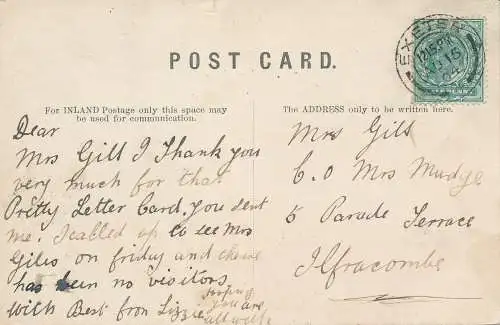 POST CARD.
EXETER
For INLAND Postage only this space may
be used for communication.
The ADDRESS only to be written here.
Dear
Mrs Gill I Thank you
very much for that
Pretty Letter Card. you sent
me. I called up to see Mrs
Giles on friday and there
has been no visitors
With Best from Lizzie
hoping
you are
all well
Mrs Gill
C.O Mrs Mudge
5 Parade Terrace
Ilfracombe